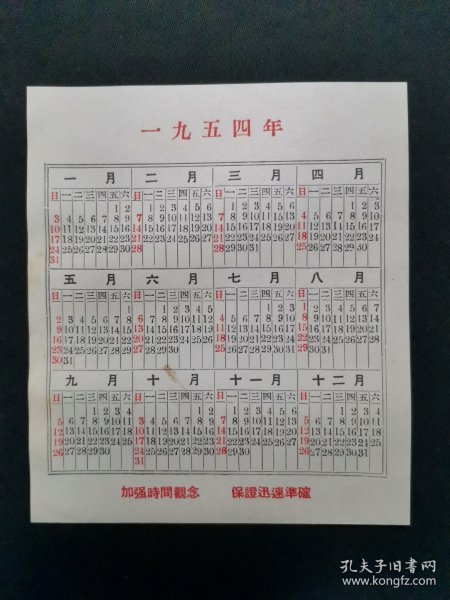 一九五四年
一月 二月 三月 四月
日一二三四五六 日一二三四五六 日一二三四五六 日一二三四五六
1 2 1 2 3 4 5 6 1 2 3 4 5 6 1 2 3
3 4 5 6 7 8 9 7 8 9 10 11 12 13 7 8 9 10 11 12 13 4 5 6 7 8 9 10
10 11 12 13 14 15 16 14 15 16 17 18 19 20 14 15 16 17 18 19 20 11 12 13 14 15 16 17
17 18 19 20 21 22 23 21 22 23 24 25 26 27 21 22 23 24 25 26 27 18 19 20 21 22 23 24
24 25 26 27 28 29 30 28 28 29 30 31 25 26 27 28 29 30
31
五月 六月 七月 八月
日一二三四五六 日一二三四五六 日一二三四五六 日一二三四五六
1 1 2 3 4 5 1 2 3 1 2 3 4 5 6 7
2 3 4 5 6 7 8 6 7 8 9 10 11 12 4 5 6 7 8 9 10 8 9 10 11 12 13 14
9 10 11 12 13 14 15 13 14 15 16 17 18 19 11 12 13 14 15 16 17 15 16 17 18 19 20 21
16 17 18 19 20 21 22 20 21 22 23 24 25 26 18 19 20 21 22 23 24 22 23 24 25 26 27 28
23 24 25 26 27 28 29 27 28 29 30 25 26 27 28 29 30 31 29 30 31
30 31
九月 十月 十一月 十二月
日一二三四五六 日一二三四五六 日一二三四五六 日一二三四五六
1 2 3 4 1 2 1 2 3 4 5 6 1 2 3 4
5 6 7 8 9 10 11 3 4 5 6 7 8 9 7 8 9 10 11 12 13 5 6 7 8 9 10 11
12 13 14 15 16 17 18 10 11 12 13 14 15 16 14 15 16 17 18 19 20 12 13 14 15 16 17 18
19 20 21 22 23 24 25 17 18 19 20 21 22 23 21 22 23 24 25 26 27 19 20 21 22 23 24 25
26 27 28 29 30 24 25 26 27 28 29 30 28 29 30 26 27 28 29 30 31
31
加强時間觀念 保證迅速準確
孔夫子旧书网
www.kongfz.com